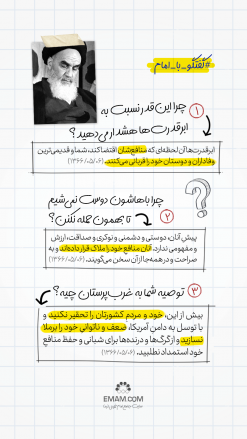 #گفتگو_با_امام
۱ چرا این قدر نسبت به
ابرقدرت‌ها هشدار می‌دهید؟
ابرقدرت‌ها آن لحظه‌ای که منافع‌شان اقتضا کند، شما و قدیمی‌ترین
وفاداران و دوستان خود را قربانی می‌کنند. (۱۳۶۶/۰۵/۰۶)
چرا باهاشون دوست نمی‌شیم
۲ تا بهمون حمله نکنن؟
پیش آنان، دوستی و دشمنی و نوکری و صداقت، ارزش
و مفهومی ندارد. آنان منافع خود را ملاک قرار داده‌اند و به
صراحت و در همه جا از آن سخن می‌گویند. (۱۳۶۶/۰۵/۰۶)
۳ توصیه شما به غرب‌پرستان چیه؟
بیش از این، خود و مردم کشورتان را تحقیر نکنید و
با توسل به دامن آمریکا، ضعف و ناتوانی خود را برملا
نسازید و از گرگ‌ها و درنده‌ها برای شبانی و حفظ منافع
خود استمداد نطلبید. (۱۳۶۶/۰۵/۰۶)
EMAM.COM